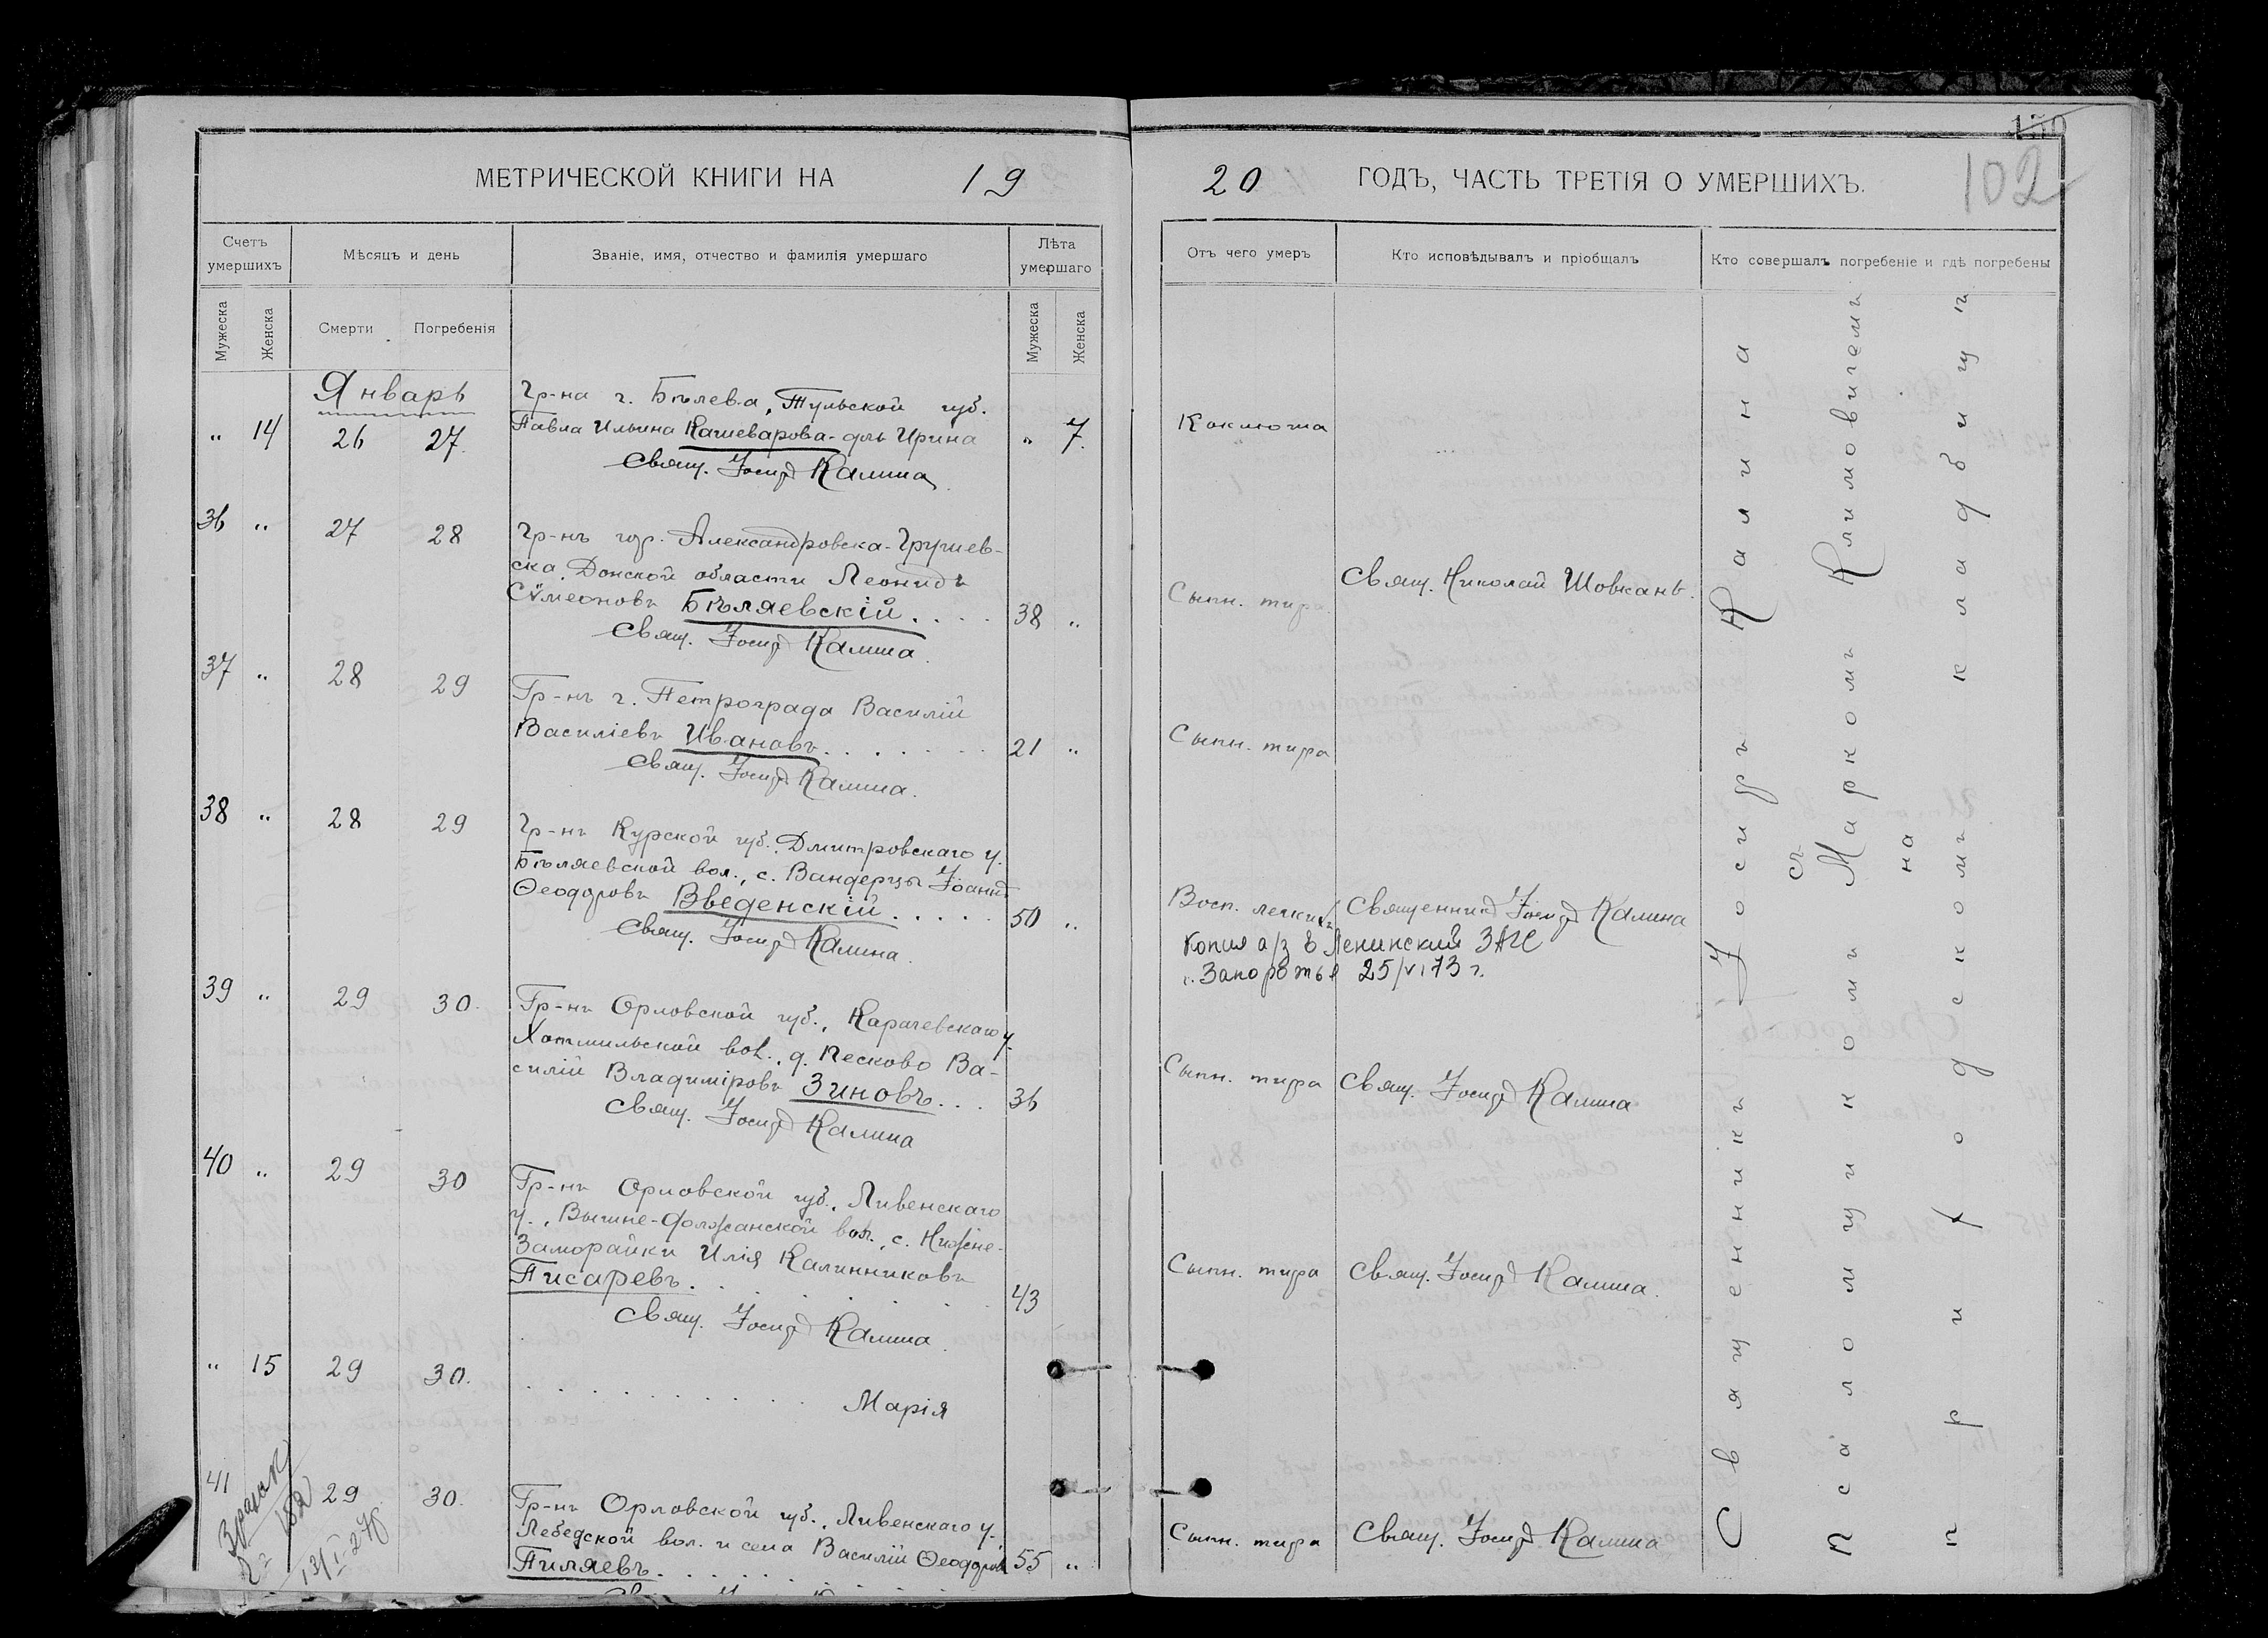 150
102
МЕТРИЧЕСКОЙ КНИГИ НА 19
20 ГОДЪ, ЧАСТЬ ТРЕТІЯ О УМЕРШИХЪ.
Счетъ умершихъ
Мѣсяцъ и день
Званіе, имя, отчество и фамилія умершаго
Лѣта умершаго
Отъ чего умеръ
Кто исповѣдывалъ и пріобщалъ
Кто совершалъ погребеніе и гдѣ погребены
Мужеска
Женска
Смерти
Погребенія
Мужеска
Женска
Январь
Гр-на г. Бѣлева, Тульской губ.
" 14 26 27. Павла Ильина Кашеварова-дль Ирина " 7. Коклюша
Свящ. Іосифъ Калина
36 " 27 28 Гр-нъ гор. Александровска-Грушев-
ска, Донской области Леонидъ
Сѵмеоновъ Бѣляевскій.... 38 " Сыпн. тифа Свящ. Николай Шовкань.
Свящ. Іосифъ Калина.
37 " 28 29 Гр-нъ г. Петрограда Василій
Василіевъ Ивановъ....... 21 " Сыпн. тифа
Свящ. Іосифъ Калина.
38 " 28 29 Гр-нъ Курской губ. Дмитровскаго у.
Бѣляевской вол., с. Вандерцы Іоаннъ
Ѳеодоровъ Введенскій..... 50 " Восп. легкихъ Священникъ Іосифъ Калина
Свящ. Іосифъ Калина.
Копия а/з в Ленинский ЗАГС
г. Запорожья 25/VI 73 г.
39 " 29 30. Гр-нъ Орловской губ., Карачевскаго у.
Хотмильской вол., д. Песково Ва-
силій Владиміровъ Зиновъ... 36 Сыпн. тифа Свящ. Іосифъ Калина
Свящ. Іосифъ Калина
40 " 29 30 Гр-нъ Орловской губ., Ливенскаго
у., Вышне-Должанской вол., с. Нижне-
Заморайки Илія Калинниковъ
Писаревъ........ 43 Сыпн. тифа Свящ. Іосифъ Калина.
Свящ. Іосифъ Калина.
" 15 29 30. ............ Марія
41 29 30. Гр-нъ Орловской губ., Ливенскаго у.
Лебедской вол. и села Василій Ѳеодоровъ
Пиляевъ.......... 55 " Сыпн. тифа Свящ. Іосифъ Калина
Священникъ Іосифъ Калина
съ
Псаломщикомъ Маркомъ Климовичемъ
на
приходскомъ кладбищѣ